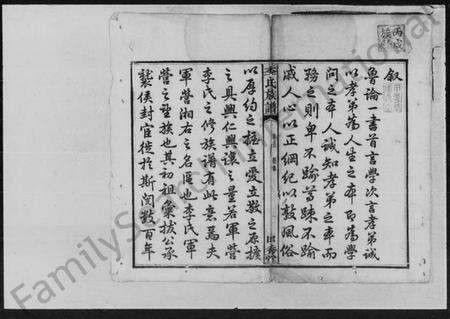 叙
魯論一書首言學次言孝弟誠
以孝弟為人生之本即為學
問之本人誠知孝弟之本而
務之則卑不踰尊踈不踰
戚人心以正綱紀以敦風俗
李氏族譜
以厚約之極立愛立敬之原擴
之其興仁興讓之量若軍營
李氏之修族譜有此意焉夫
軍營湘右之名區也李氏軍
營之望族也其初祖 拔公承
襲侯封宦徙於斯閱數百年
FamilySearch International